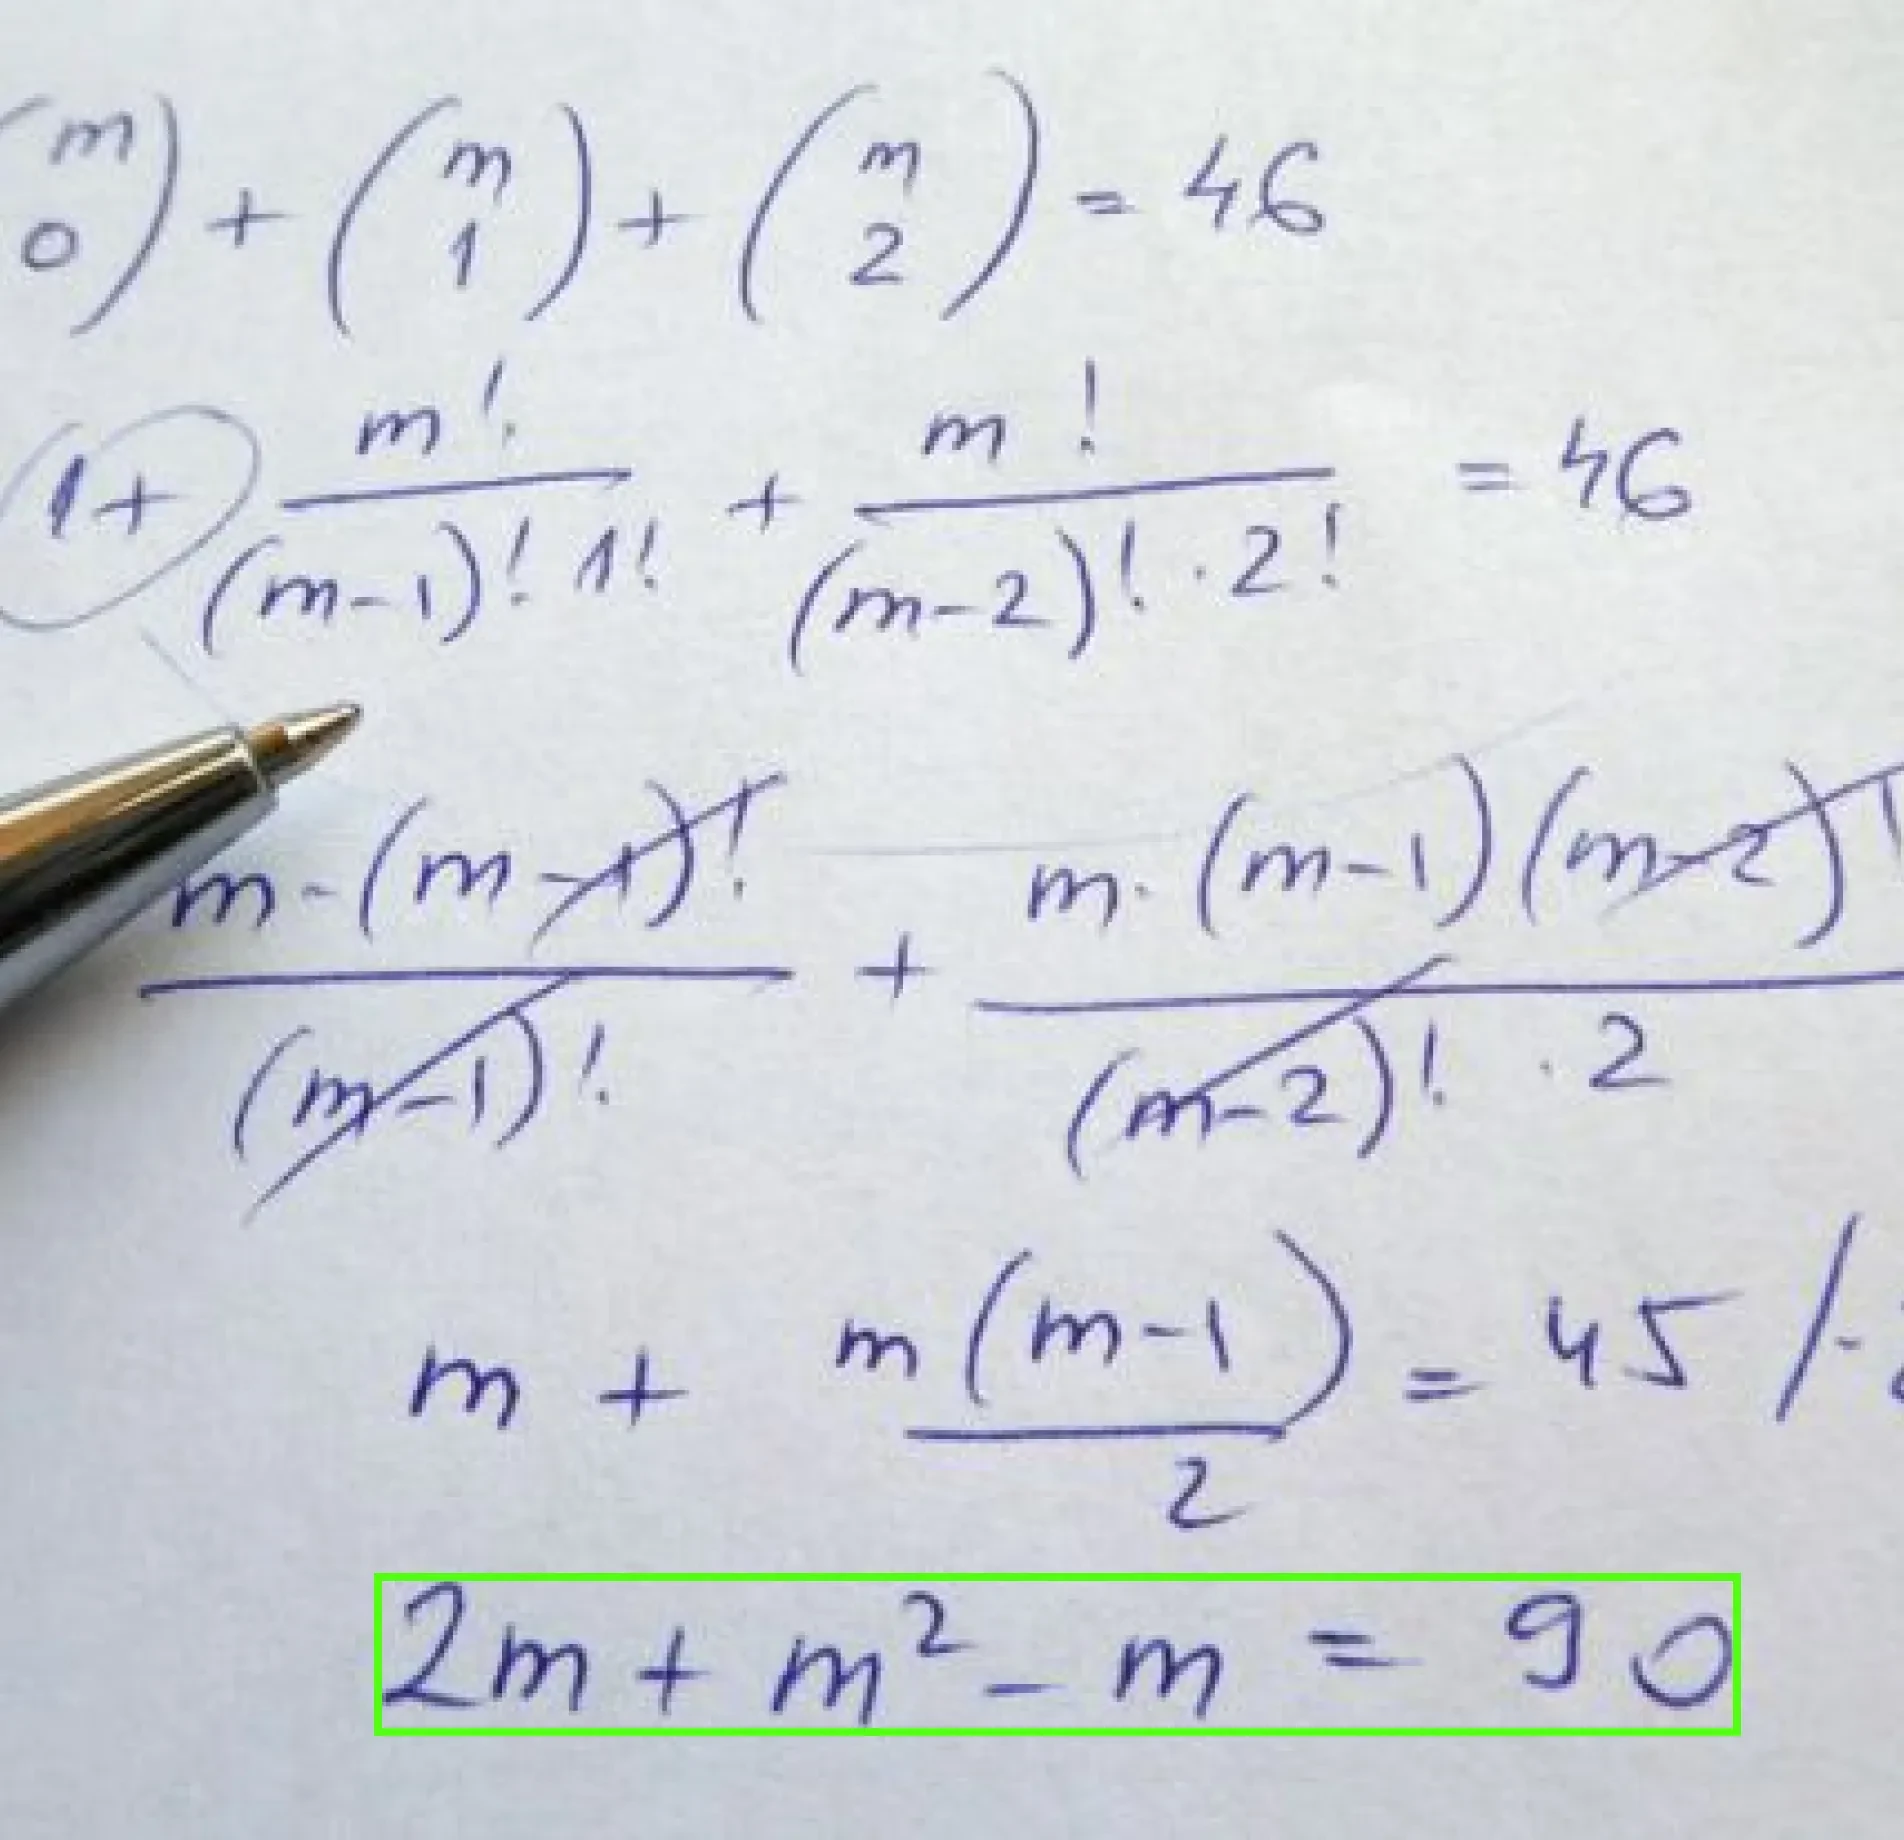 (m 0) + (m 1) + (m 2) = 46
1 + m! / (m-1)! 1! + m! / (m-2)! · 2! = 46
m · (m-1)! / (m-1)! + m · (m-1)(m-2)! / (m-2)! · 2
m + m(m-1) / 2 = 45 / ·
2m + m² - m = 90